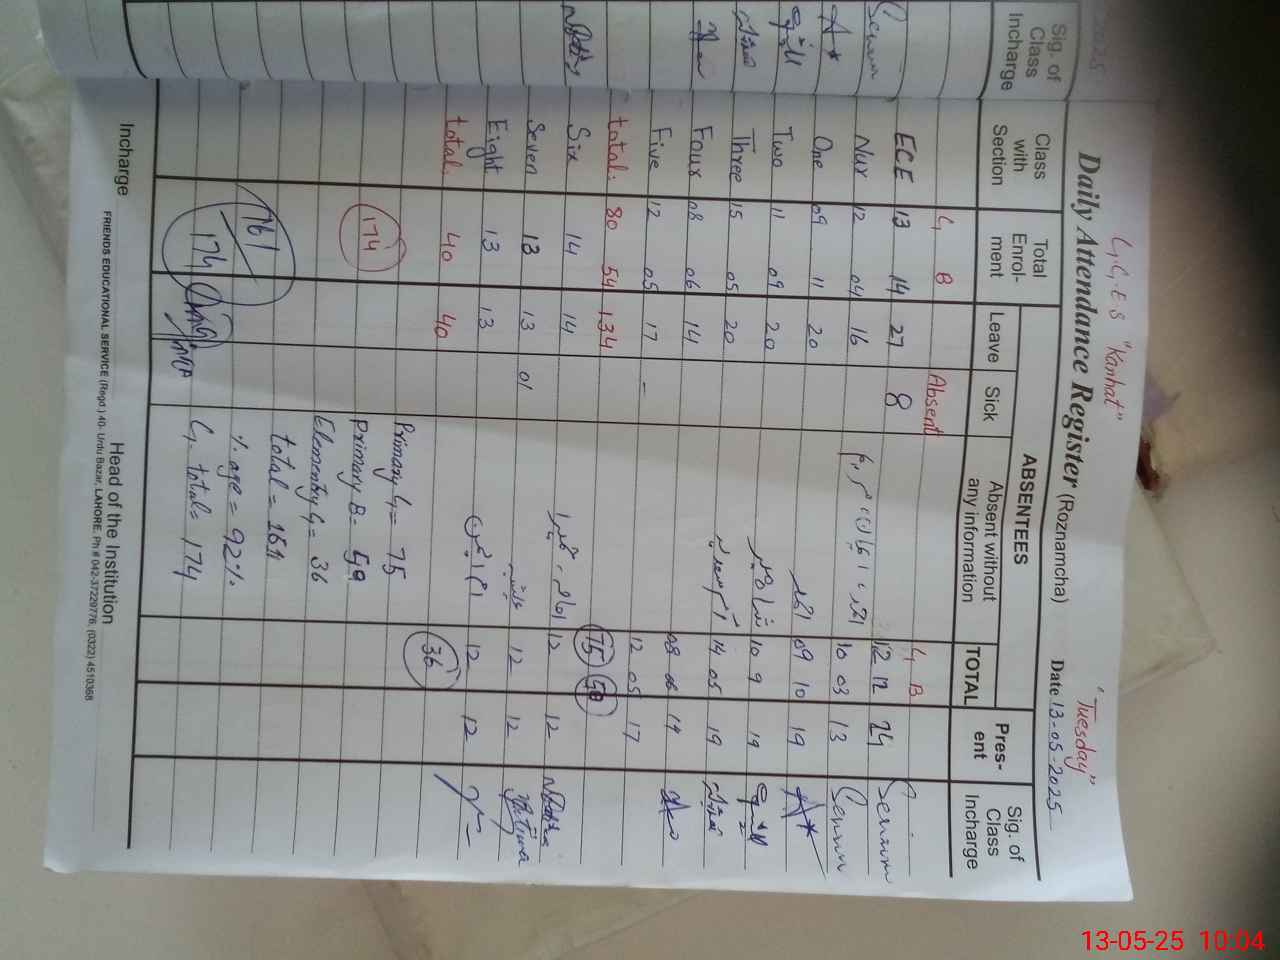 G.G.E.S "Kanhat" "Tuesday"
Daily Attendance Register (Roznamcha) Date 13-05-2025
Sig. of Class Incharge
Class with Section
Total Enrol-ment
ABSENTEES
Leave
Sick
Absent without any information
TOTAL
Pres-ent
Sig. of Class Incharge
G B Absent G B
ECE 13 14 27 8 12 12 24
Nur 12 04 16 10 03 13
One 09 11 20 09 10 19
Two 11 09 20 10 9 19
Three 15 05 20 14 05 19
Four 08 06 14 08 06 14
Five 12 05 17 - 12 05 17
total: 80 54 134 75 50
Six 14 14 12 12
Seven 13 13 01 12 12
Eight 13 13 12 12
total: 40 40 36
Primary G = 75
174 Primary B =
Elementry G = 36
total = 161
161 % age = 92%
174 G. total = 174
Incharge Head of the Institution
FRIENDS EDUCATIONAL SERVICE (Regd.) 40- Urdu Bazar, LAHORE. Ph # 042-37229776, (0322) 4510368
13-05-25 10:04